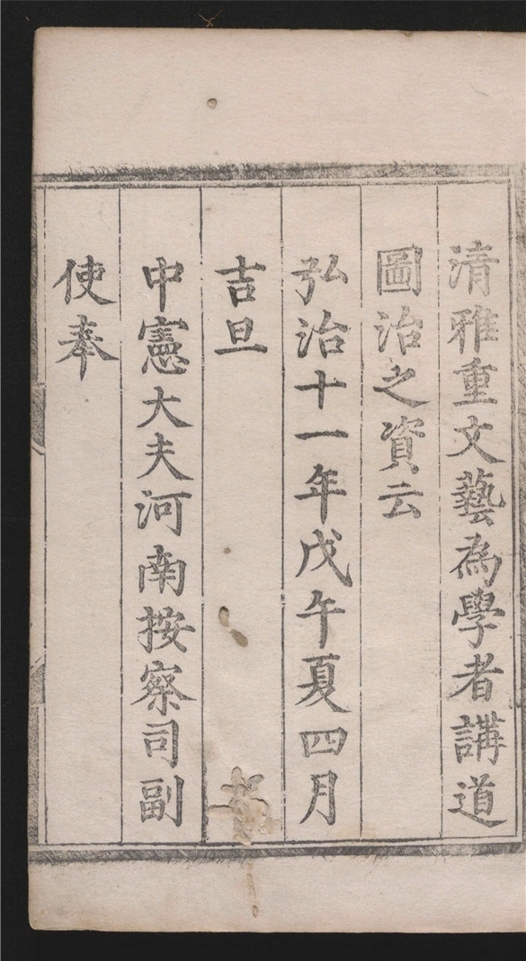 清雅重文藝為學者講道
圖治之資云
弘治十一年戊午夏四月
吉旦
中憲大夫河南按察司副
使奉